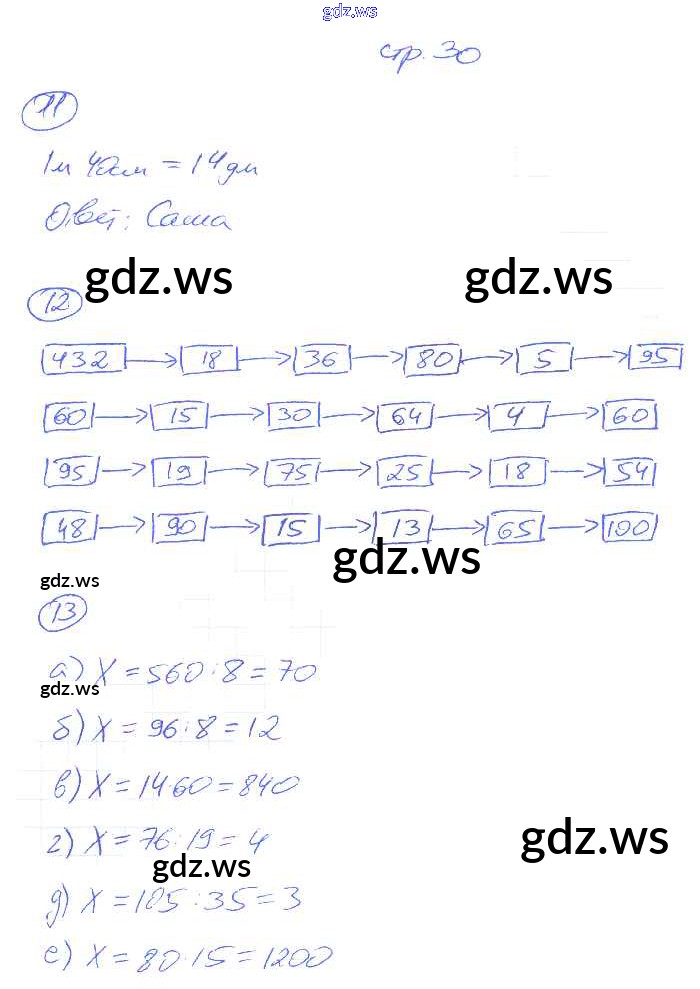 gdz.ws
стр. 30
11
1м 40см = 14дм
Ответ: Саша
gdz.ws gdz.ws
12
432 → 18 → 36 → 80 → 5 → 95
60 → 15 → 30 → 64 → 4 → 60
95 → 19 → 75 → 25 → 18 → 54
48 → 90 → 15 → 13 → 65 → 100
gdz.ws
gdz.ws
13
а) X = 560 : 8 = 70
gdz.ws
б) X = 96 : 8 = 12
в) X = 14·60 = 840
г) X = 76 : 19 = 4
gdz.ws
gdz.ws
д) X = 105 : 35 = 3
е) X = 80·15 = 1200